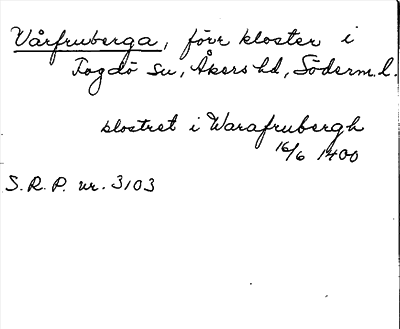 Vårfruberga, förr kloster i
Fogdö sn, Åkers hd, Söderm.l.
klostret i Warafrubergh
16/6 1400
S.R.P. nr. 3103